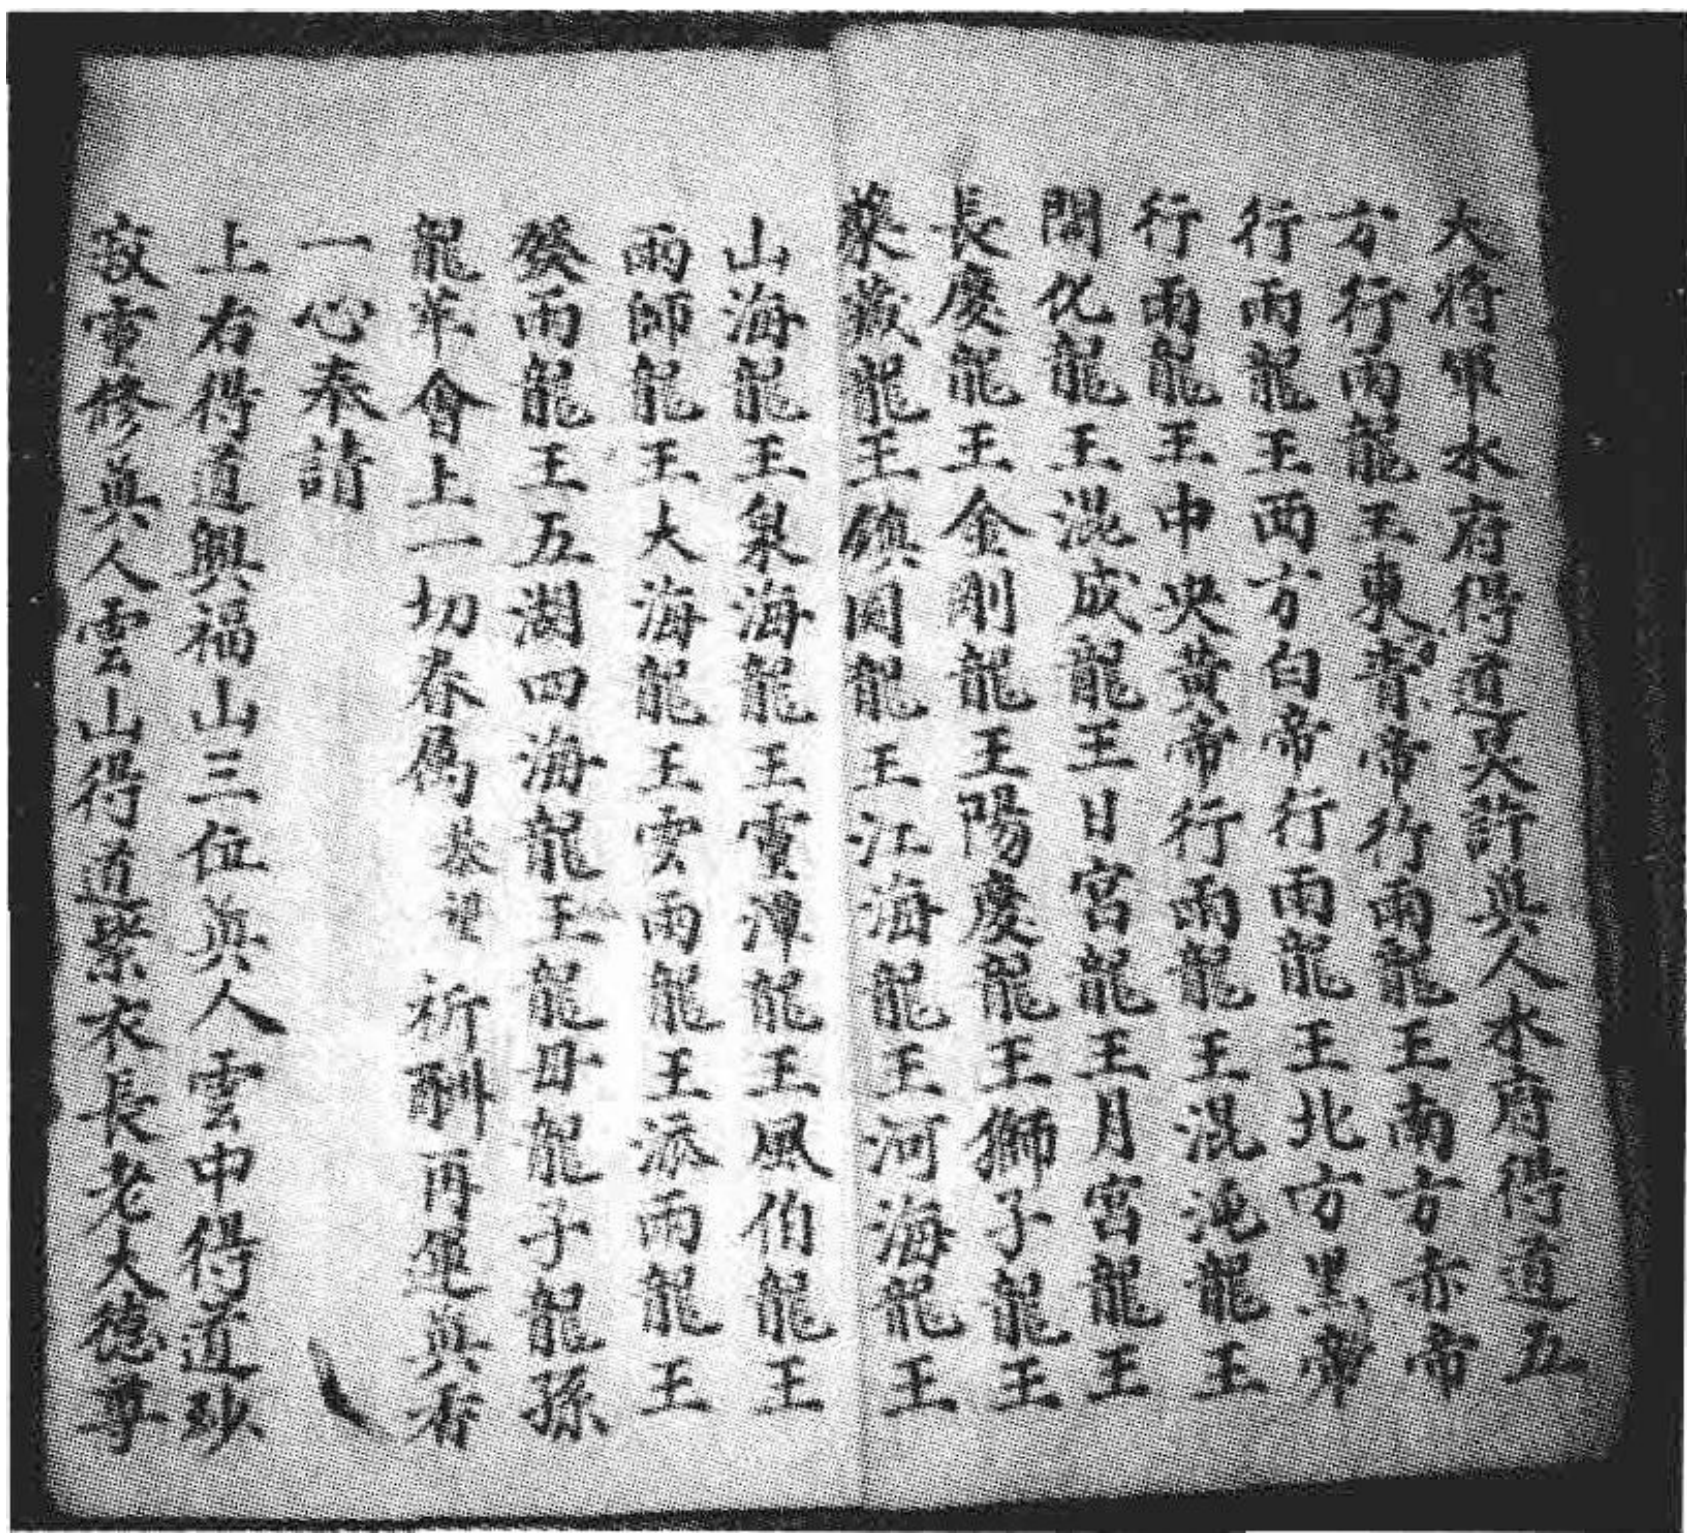 大將軍水府得道吴許真人水府得道五
方行雨龍王東青帝行雨龍王南方赤帝
行雨龍王西方白帝行雨龍王北方黑帝
行雨龍王中央黃帝行雨龍王混沌龍王
開化龍王混成龍王日宮龍王月宮龍王
長慶龍王金剛龍王陽慶龍王獅子龍王
藏龍王鎮国龍王江海龍王河海龍王
山海龍王泉海龍王靈潭龍王風伯龍王
雨師龍王大海龍王雲雨龍王派雨龍王
發雨龍王五湖四海龍王龍母龍子龍孫
龍華會上一切春為 祈酬再運真香
一心奉請
上右得道興福山三位真人雲中得道妙
寂靈修真人雲山得道紫衣長老大德尊